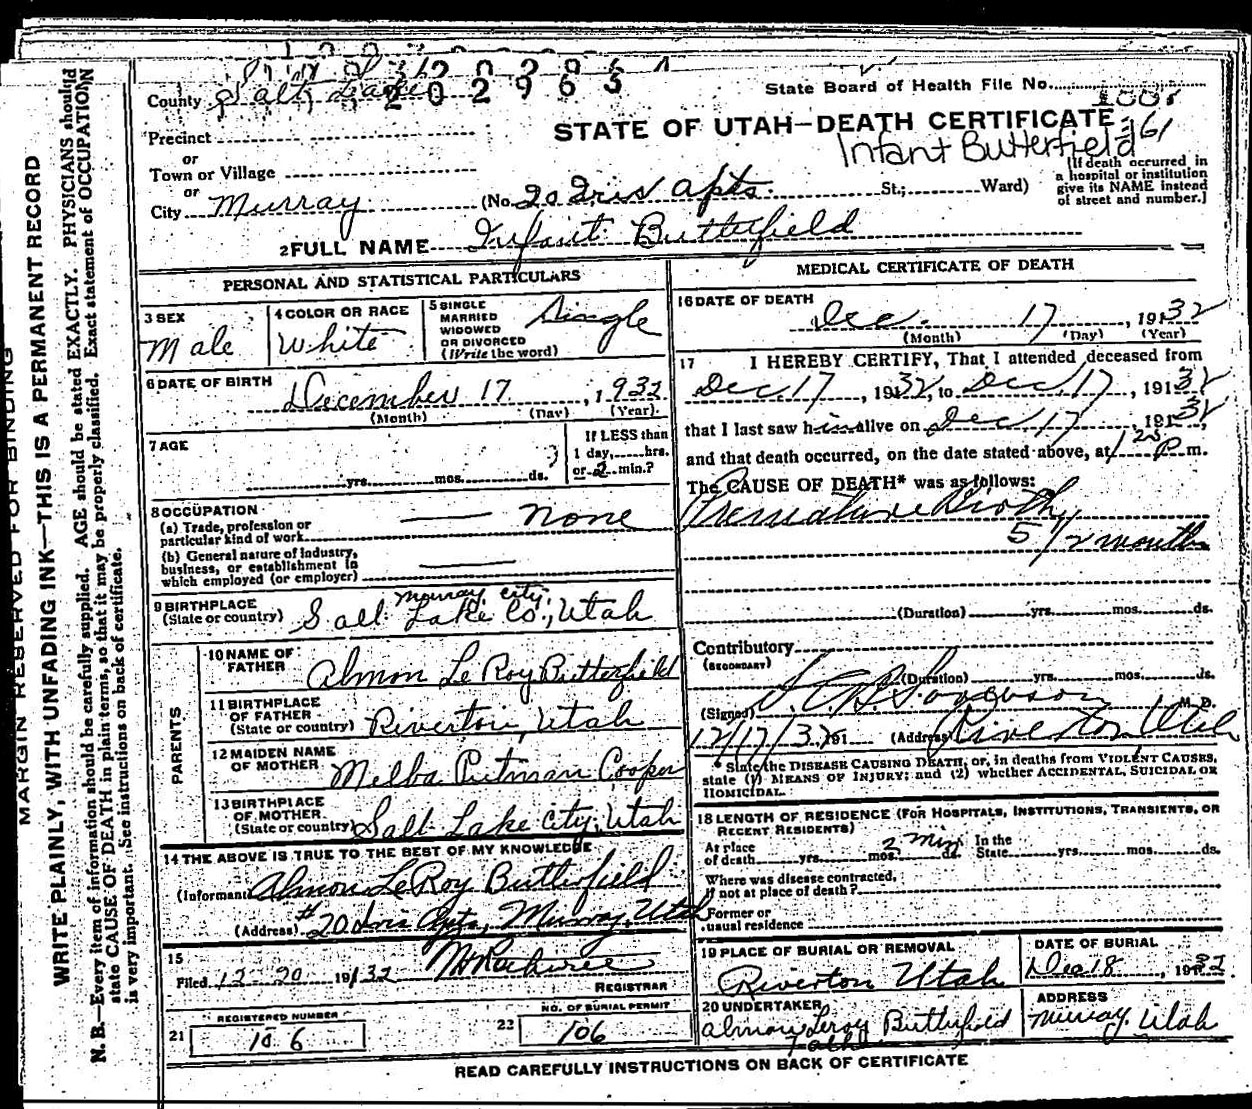 202963
County Salt Lake
State Board of Health File No.
Precinct
STATE OF UTAH—DEATH CERTIFICATE
161
or
Infant Butterfield
Town or Village
or
City Murray (No. 20 Iris Apts. St.; Ward)
[If death occurred in
a hospital or institution
give its NAME instead
of street and number.]
2 FULL NAME Infant Butterfield
PERSONAL AND STATISTICAL PARTICULARS
3 SEX
Male
4 COLOR OR RACE
White
5 SINGLE
MARRIED
WIDOWED
OR DIVORCED
(Write the word)
Single
6 DATE OF BIRTH
December 17, 1932
(Month) (Day) (Year)
7 AGE
yrs. mos. ds.
If LESS than
1 day, hrs.
or 2 min.?
8 OCCUPATION
(a) Trade, profession or
particular kind of work — none
(b) General nature of industry,
business, or establishment in
which employed (or employer) —
9 BIRTHPLACE
(State or country)
Murray City,
Salt Lake Co., Utah
PARENTS
10 NAME OF
FATHER
Almon LeRoy Butterfield
11 BIRTHPLACE
OF FATHER
(State or country) Riverton, Utah
12 MAIDEN NAME
OF MOTHER
Melba Putman Cooper
13 BIRTHPLACE
OF MOTHER
(State or country) Salt Lake City, Utah
14 THE ABOVE IS TRUE TO THE BEST OF MY KNOWLEDGE
(Informant) Almon LeRoy Butterfield
(Address) #20 Apts, Murray, Utah
15
Filed 12-20 1932
REGISTRAR
REGISTERED NUMBER
21 106
NO. OF BURIAL PERMIT
22 106
MEDICAL CERTIFICATE OF DEATH
16 DATE OF DEATH
Dec. 17, 1932
(Month) (Day) (Year)
17 I HEREBY CERTIFY, That I attended deceased from
Dec. 17, 1932, to Dec. 17, 1932
that I last saw him alive on Dec 17, 1932,
and that death occurred, on the date stated above, at 1 25 P m.
The CAUSE OF DEATH* was as follows:
Premature Birth
5 1/2 months
(Duration) yrs. mos. ds.
Contributory
(SECONDARY)
(Duration) yrs. mos. ds.
(Signed) Sorenson M. D.
12/17/32 191 (Address) Riverton Utah
* State the DISEASE CAUSING DEATH, or, in deaths from VIOLENT CAUSES,
state (1) MEANS OF INJURY; and (2) whether ACCIDENTAL, SUICIDAL OR
HOMICIDAL.
18 LENGTH OF RESIDENCE (FOR HOSPITALS, INSTITUTIONS, TRANSIENTS, OR
RECENT RESIDENTS)
At place
of death yrs. mos. 2 Min ds. In the
State yrs. mos. ds.
Where was disease contracted,
if not at place of death?
Former or
usual residence
19 PLACE OF BURIAL OR REMOVAL
Riverton Utah
DATE OF BURIAL
Dec 18, 1932
20 UNDERTAKER
Almon Leroy Butterfield
Father
ADDRESS
Murray, Utah
READ CAREFULLY INSTRUCTIONS ON BACK OF CERTIFICATE
MARGIN RESERVED FOR BINDING
WRITE PLAINLY, WITH UNFADING INK—THIS IS A PERMANENT RECORD
N. B.—Every item of information should be carefully supplied. AGE should be stated EXACTLY. PHYSICIANS should
state CAUSE OF DEATH in plain terms, so that it may be properly classified. Exact statement of OCCUPATION
is very important. See instructions on back of certificate.